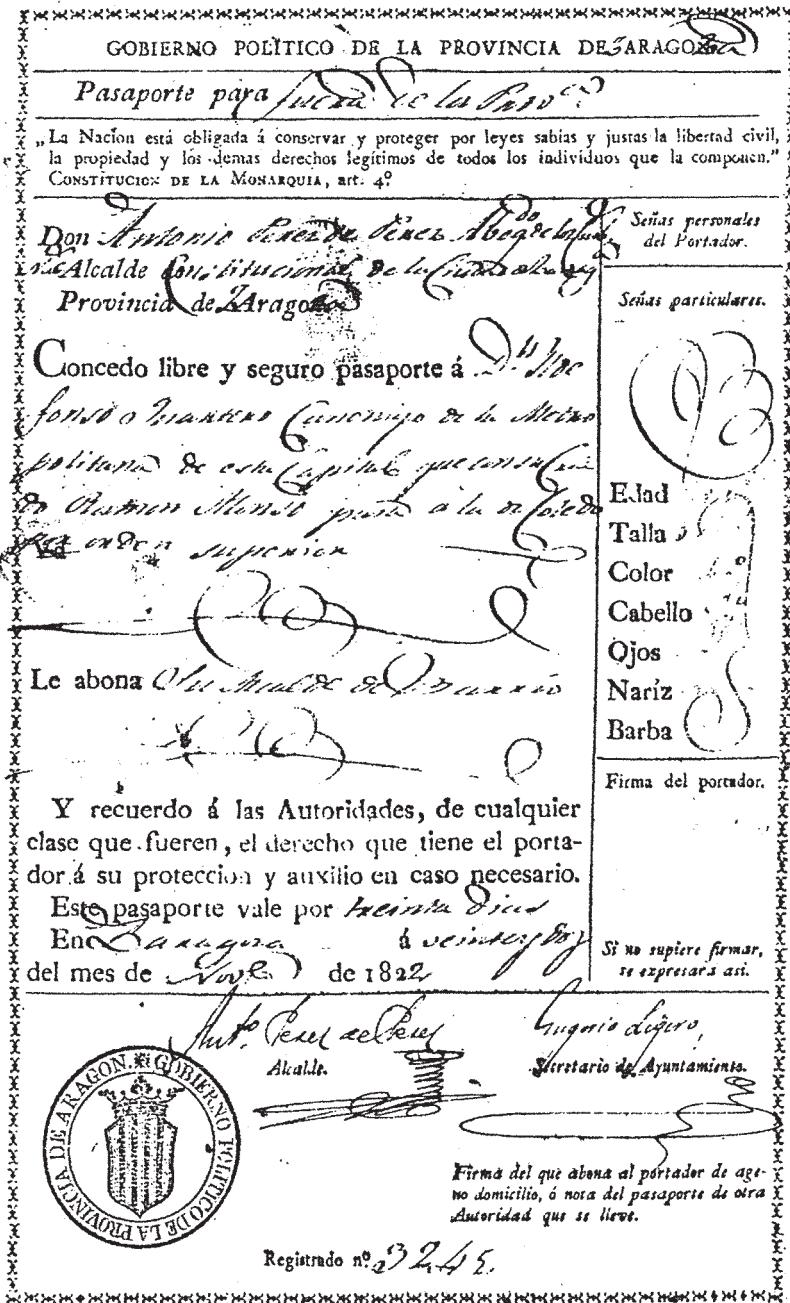 GOBIERNO POLÍTICO DE LA PROVINCIA DE ZARAGOZA
Pasaporte para fuera de la Prov.ca
„La Nacion está obligada á conservar y proteger por leyes sabias y justas la libertad civil,
la propiedad y los demas derechos legítimos de todos los individuos que la componen.”
CONSTITUCION DE LA MONARQUIA, art. 4º
Don Antonio Perez de Perez Abogdo de la
Alcalde Constitucional de la Ciudad
Provincia de Zaragoza
Concedo libre y seguro pasaporte á Dn Ilde
fonso Mantero Canonigo de la Metro
politana de esta Capital que con su Cria
do Ramon Alonso pasa a la de Toledo
por orden superior
Le abona el Alcalde de Barrio
Y recuerdo á las Autoridades, de cualquier
clase que fueren, el derecho que tiene el porta-
dor á su proteccion y auxilio en caso necesario.
Este pasaporte vale por treinta dias
En Zaragoza á veinte y dos
del mes de Novbe de 1822
Señas personales
del Portador.
Señas particulares.
Edad
Talla
Color
Cabello
Ojos
Naríz
Barba
Firma del portador.
Si no supiere firmar,
se expresará asi.
Antº Perez de Perez
Alcalde.
Eugenio Ligero,
Secretario de Ayuntamiento.
GOBIERNO POLITICO DE LA PROVINCIA DE ARAGON.
Firma del que abona al portador de age-
no domicilio, ó nota del pasaporte de otra
Autoridad que se lleve.
Registrado nº 3245.